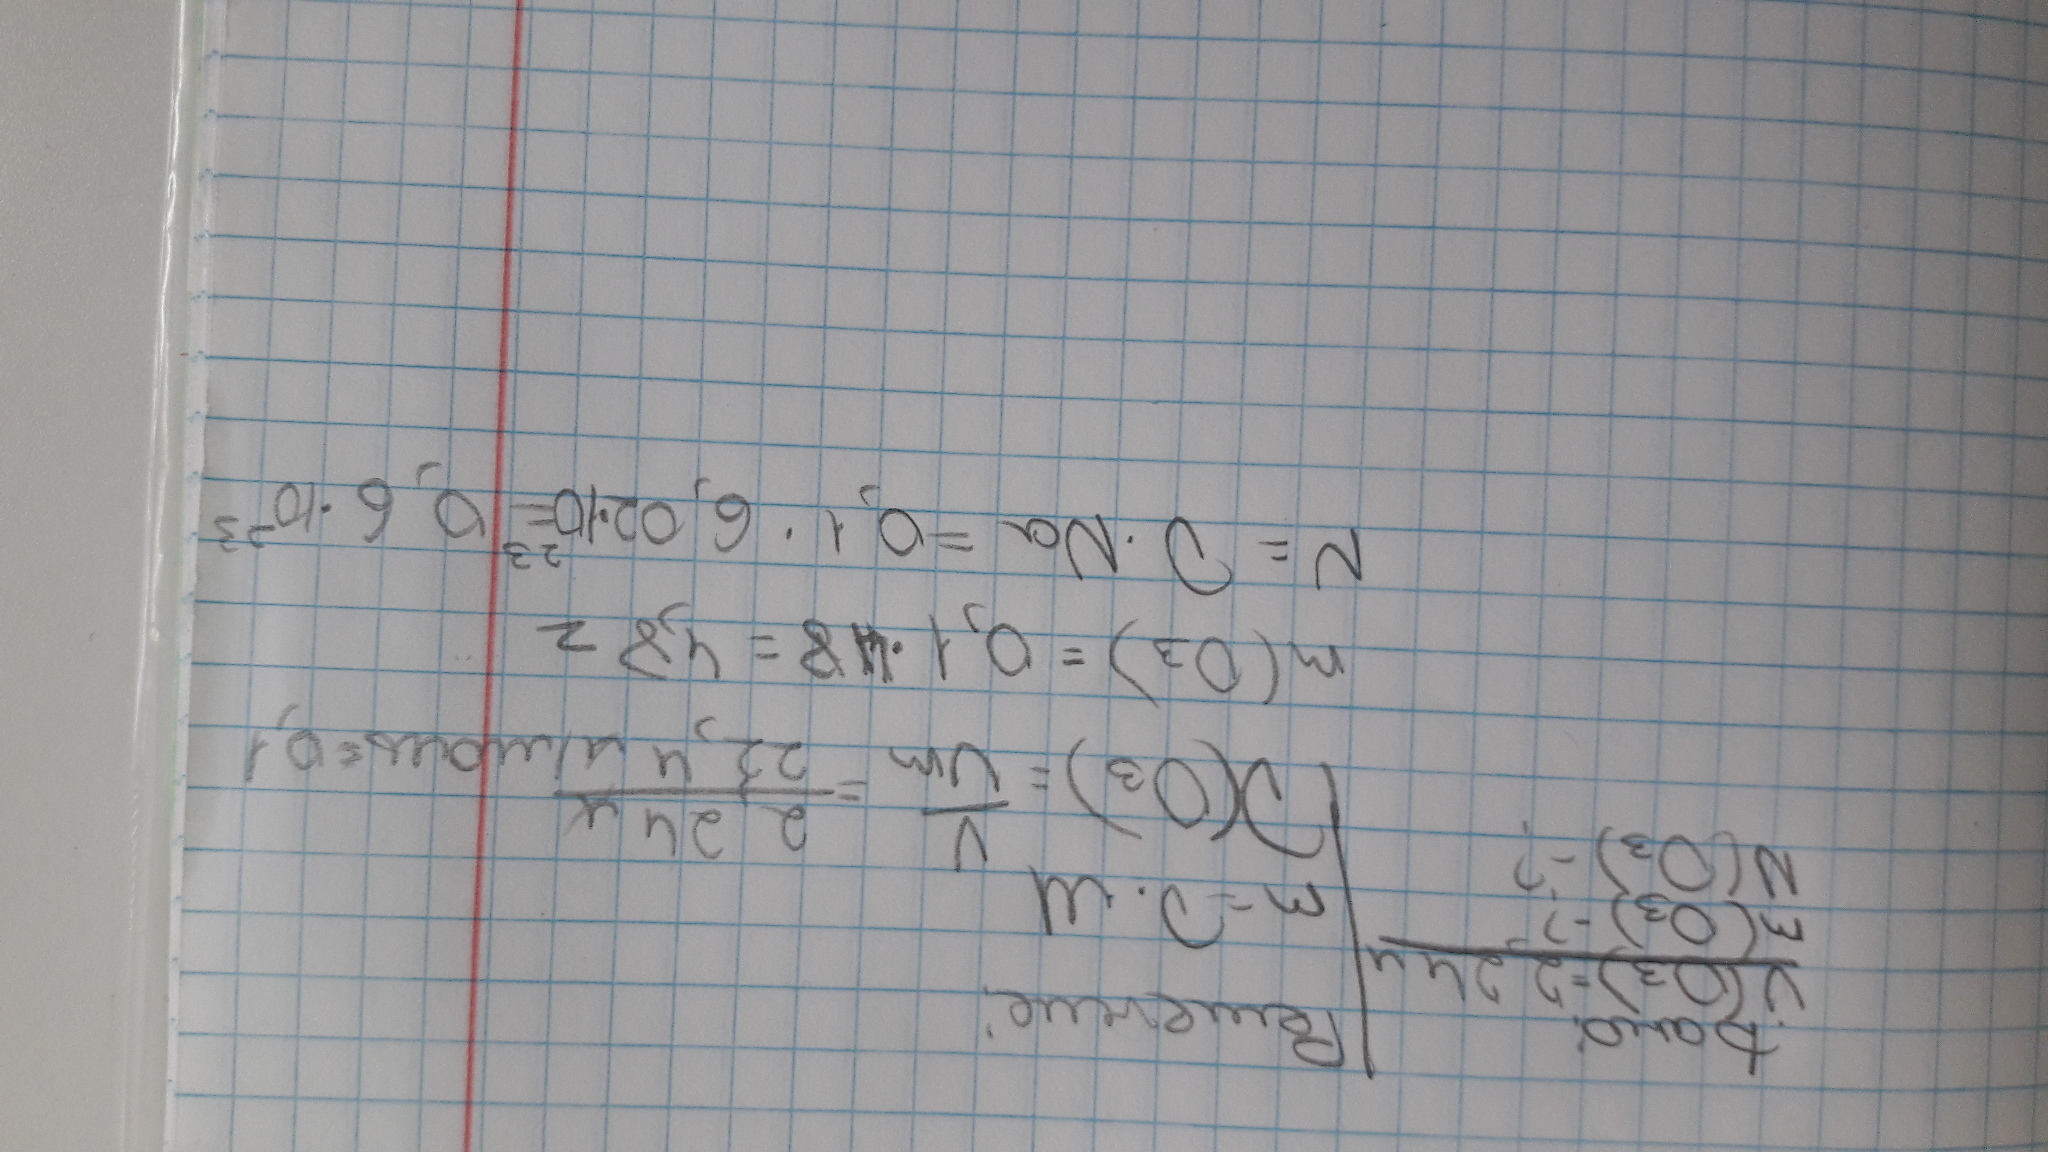 Дано:
V(O3)=2,24л
m(O3)-?
N(O3)-?
Решение:
m=ν·M
ν(O3) = V/Vm = 2,24л/22,4 л/моль=0,1
m(O3) = 0,1·48 = 4,8 г
N = ν·Na =0,1 · 6,02·10²³= 0,6·10²³